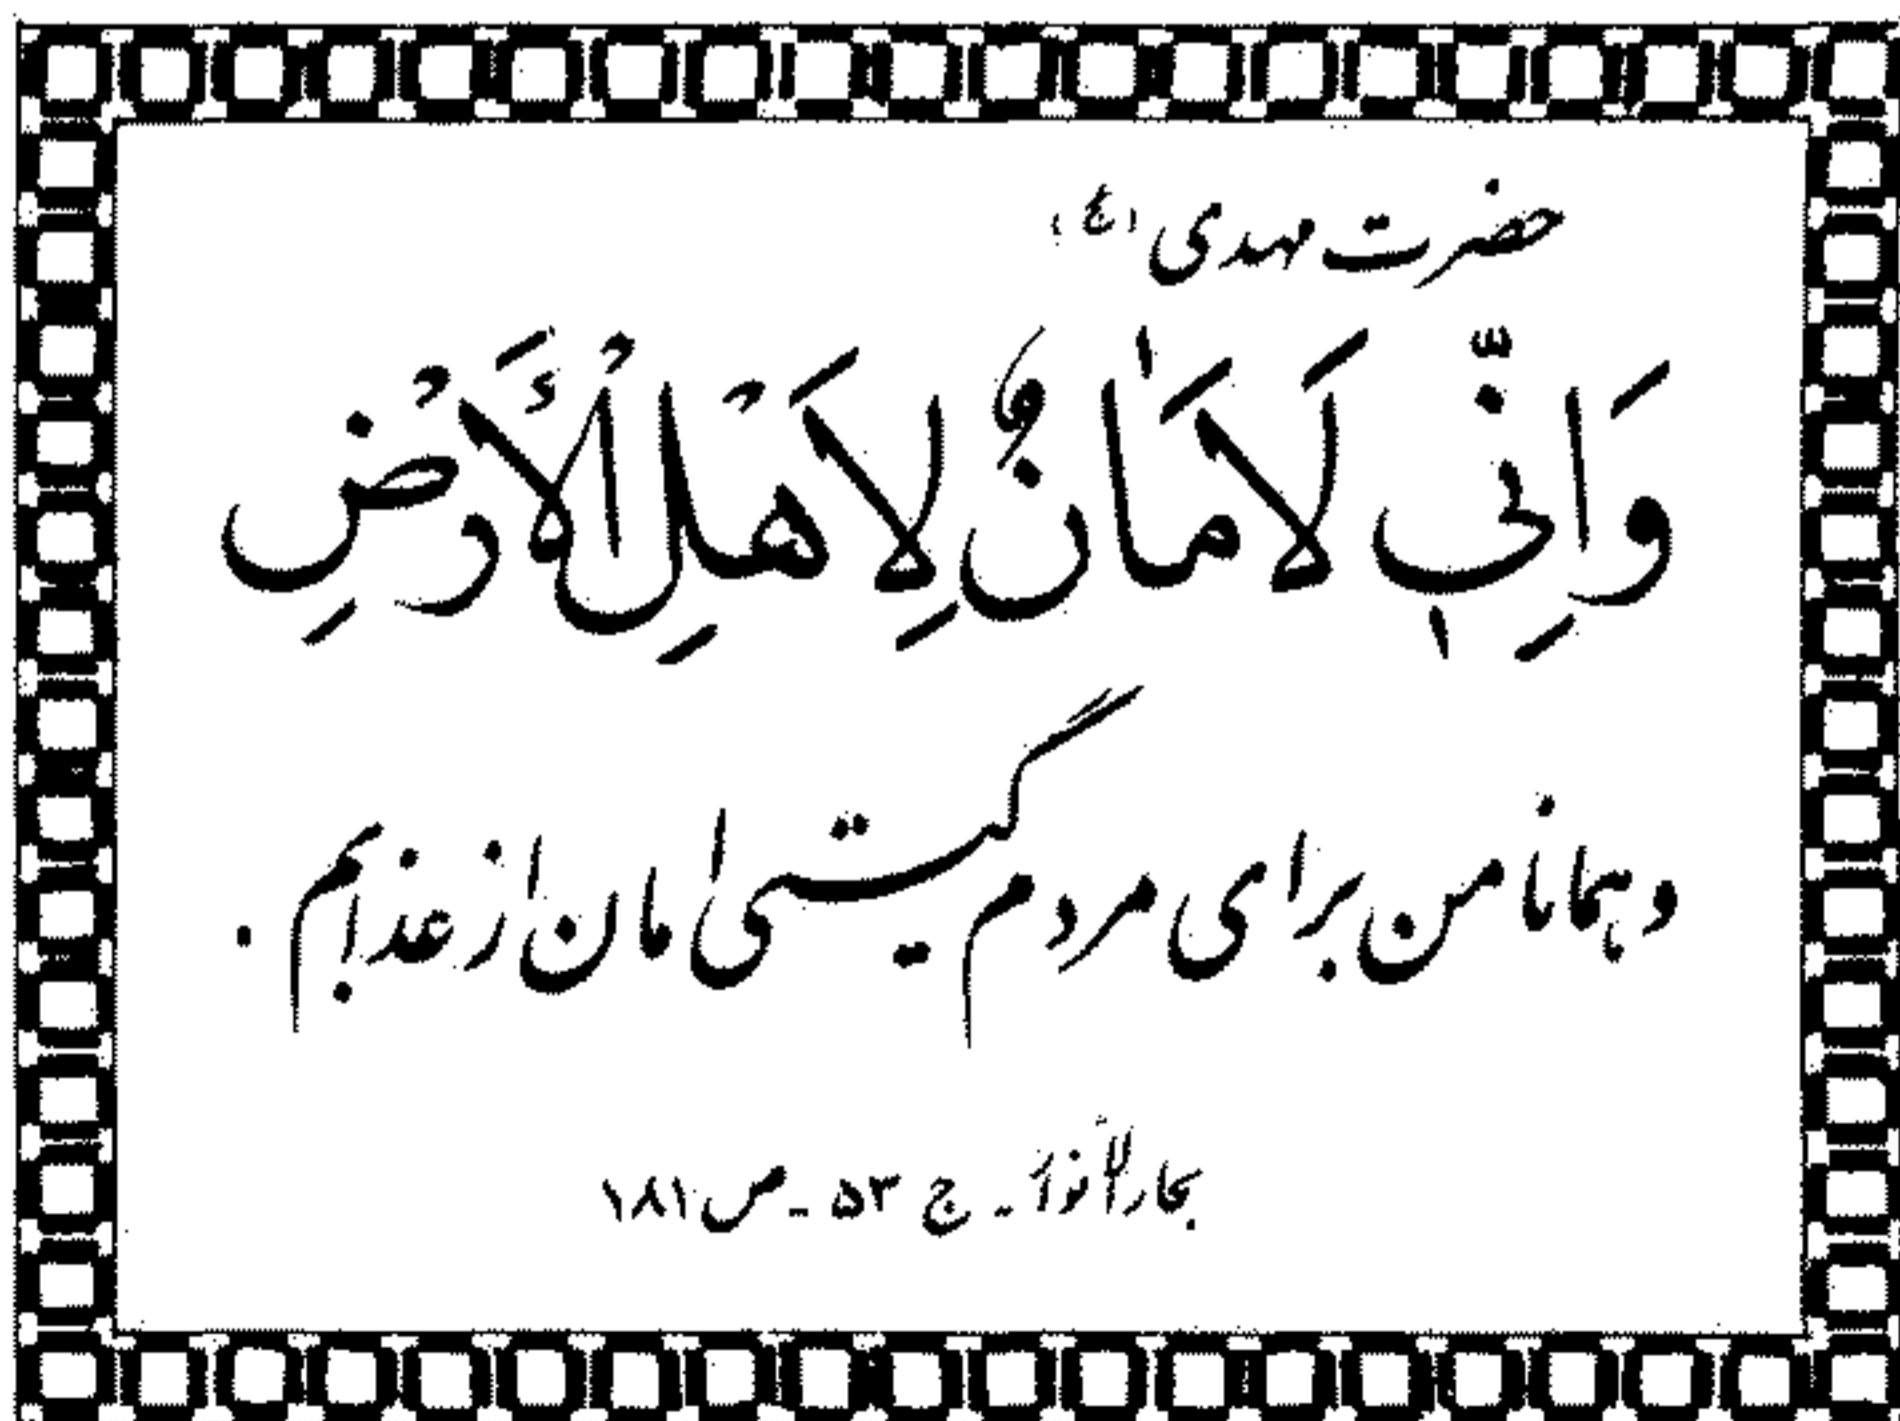 حضرت مهدی (ع)
وَاِنّی لَاَمٰانٌ لِاَهْلِ الْأَرْضِ
و همانا من برای مردم گیتی امان از عذابم .
بحارالأنوار - ج ۵۳ - ص ۱۸۱